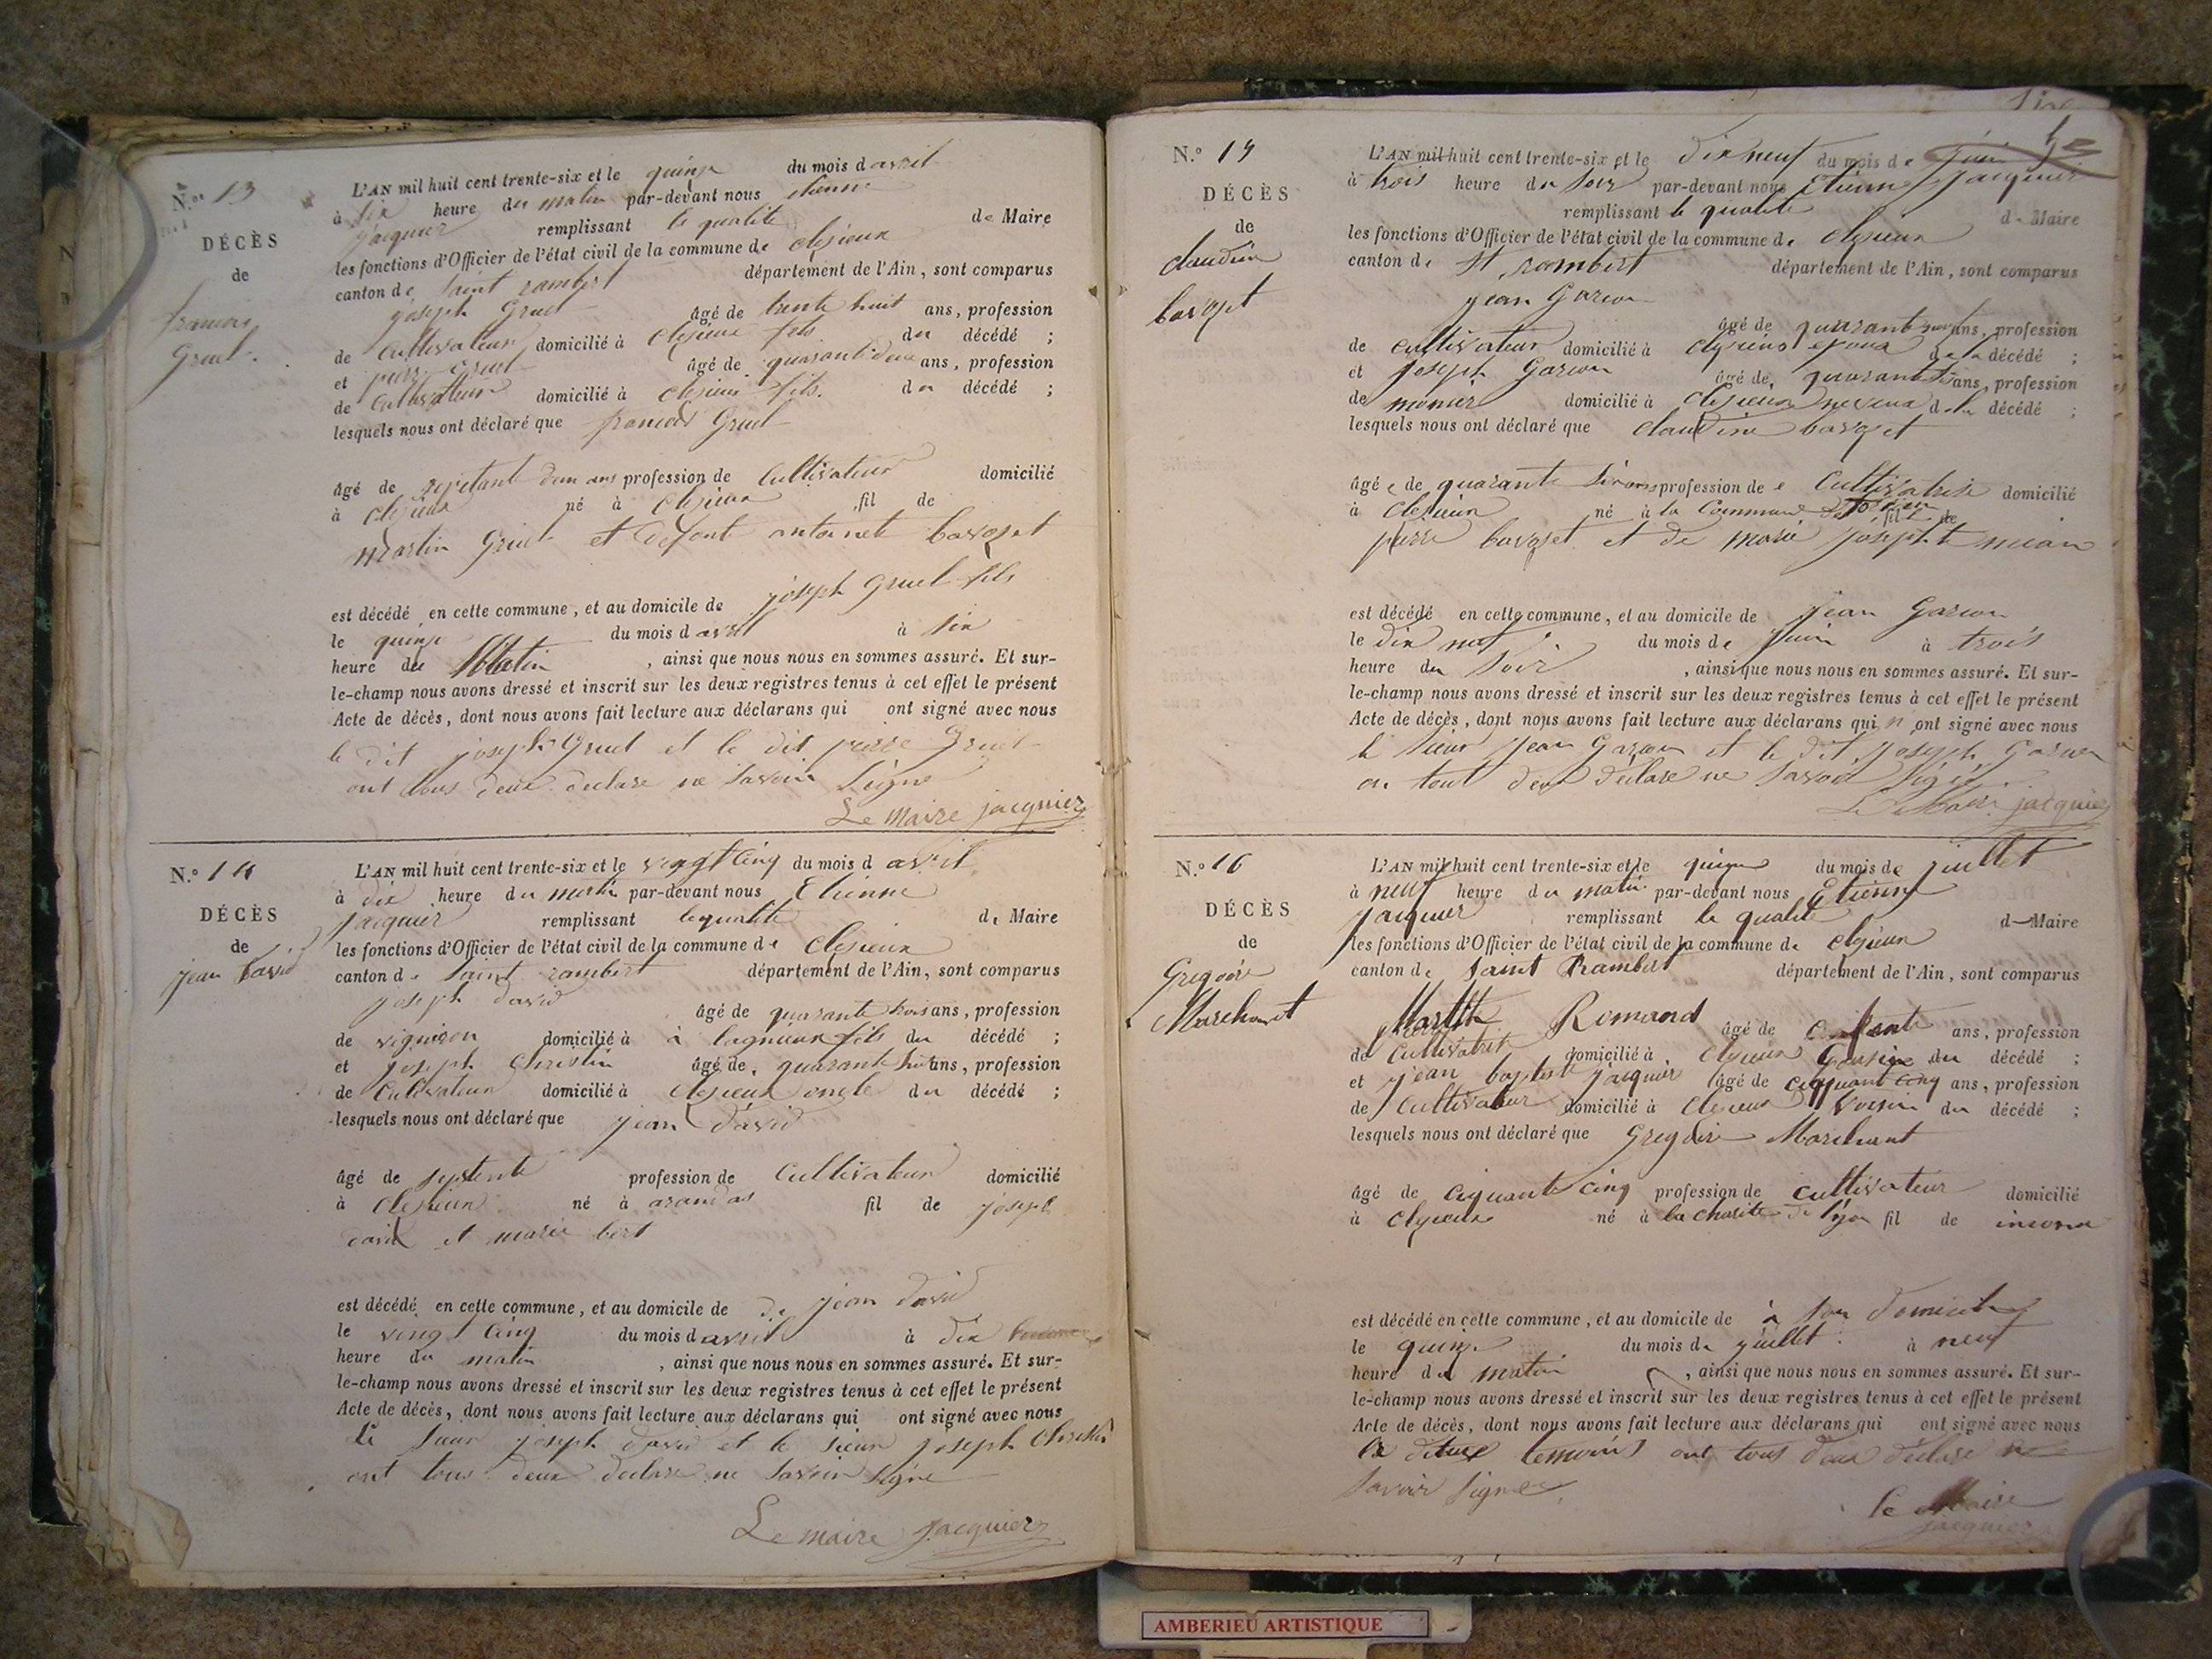 N.º 13
DÉCÈS
de
francois
Gruel.
L'AN mil huit cent trente-six et le quinze du mois d avril
à six heure du matin par-devant nous etienne
jacquier remplissant le qualite de Maire
les fonctions d'Officier de l'état civil de la commune de clesieux
canton de saint rambert département de l'Ain, sont comparus
joseph Gruel âgé de trente huit ans, profession
de cultivateur domicilié à clesieux fils du décédé ;
et pierre Gruel âgé de quarante deux ans, profession
de cultivateur domicilié à clesieux fils. du décédé ;
lesquels nous ont déclaré que francois Gruel
âgé de septant deux ans profession de cultivateur domicilié
à clesieux né à clesieux fil de
martin Gruel et defunte antoinete bavozet
est décédé en cette commune, et au domicile de joseph gruel fils
le quinze du mois d avril à six
heure du Matin , ainsi que nous nous en sommes assuré. Et sur-
le-champ nous avons dressé et inscrit sur les deux registres tenus à cet effet le présent
Acte de décès, dont nous avons fait lecture aux déclarans qui ont signé avec nous
le dit joseph Gruel et le dit pierre Gruel
ont tous deux declare ne savoir signe
Le maire jacquier
N.º 14
DÉCÈS
de
jean david
L'AN mil huit cent trente-six et le vingt cinq du mois d avril
à dix heure du matin par-devant nous Etienne
jacquier remplissant le qualite de Maire
les fonctions d'Officier de l'état civil de la commune de clesieux
canton de saint rambert département de l'Ain, sont comparus
joseph david âgé de quarante trois ans, profession
de vigneron domicilié à à lagnieux fils du décédé ;
et joseph Christin âgé de quarante huit ans, profession
de cultivateur domicilié à clesieux oncle du décédé ;
lesquels nous ont déclaré que jean david
âgé de septente profession de cultivateur domicilié
à clesieux né à arandas fil de joseph
david et marie bert
est décédé en cette commune, et au domicile de de jean david
le vingt cinq du mois d avril à dix
heure du matin , ainsi que nous nous en sommes assuré. Et sur-
le-champ nous avons dressé et inscrit sur les deux registres tenus à cet effet le présent
Acte de décès, dont nous avons fait lecture aux déclarans qui ont signé avec nous
le sieur joseph david et le sieur joseph christin
ont tous deux declare ne savoir signe
Le maire jacquier
N.º 15
DÉCÈS
de
claudine
bavozet
L'AN mil huit cent trente-six et le dix neuf du mois de juin
à trois heure du soir par-devant nous Etienne jacquier
remplissant le qualite de Maire
les fonctions d'Officier de l'état civil de la commune de clesieux
canton de St rambert département de l'Ain, sont comparus
jean Garcon âgé de quarante ans, profession
de cultivateur domicilié à clesieux epoux de la décédé ;
et joseph Garcon âgé de quarante ans, profession
de domicilié à clesieux neveux de la décédé ;
lesquels nous ont déclaré que claudine bavozet
âgé e de quarante six ans profession de e cultivatrise domicilié
à clesieux né à la commune fil de
pierre bavozet et de marie josephte mean
est décédé en cette commune, et au domicile de jean Garcon
le dix neuf du mois de juin à trois
heure du soir , ainsi que nous nous en sommes assuré. Et sur-
le-champ nous avons dressé et inscrit sur les deux registres tenus à cet effet le présent
Acte de décès, dont nous avons fait lecture aux déclarans qui n ont signé avec nous
le sieur jean Garcon et le dit joseph Garcon
on tout deux déclare ne savoir signe
Le Maire jacquier
N.º 16
DÉCÈS
de
Gregoire
Marchant
L'AN mil huit cent trente-six et le quinze du mois de juillet
à neuf heure du matin par-devant nous Etienne
jacquier remplissant le qualite de Maire
les fonctions d'Officier de l'état civil de la commune de clesieux
canton de saint Rambert département de l'Ain, sont comparus
Romand âgé de ans, profession
de cultivateur domicilié à clesieux du décédé ;
et jean baptiste jacquier âgé de cinquant cinq ans, profession
de cultivateur domicilié à clesieux voisin du décédé ;
lesquels nous ont déclaré que Gregoire Marchant
âgé de ciquante cinq profession de cultivateur domicilié
à clesieux né à la charite de lyon fil de inconu
est décédé en cette commune, et au domicile de à son domicile
le quinze du mois de juillet à neuf
heure du matin , ainsi que nous nous en sommes assuré. Et sur-
le-champ nous avons dressé et inscrit sur les deux registres tenus à cet effet le présent
Acte de décès, dont nous avons fait lecture aux déclarans qui ont signé avec nous
temoins ont tous deux déclare ne
savoir signe
le Maire
jacquier
AMBERIEU ARTISTIQUE